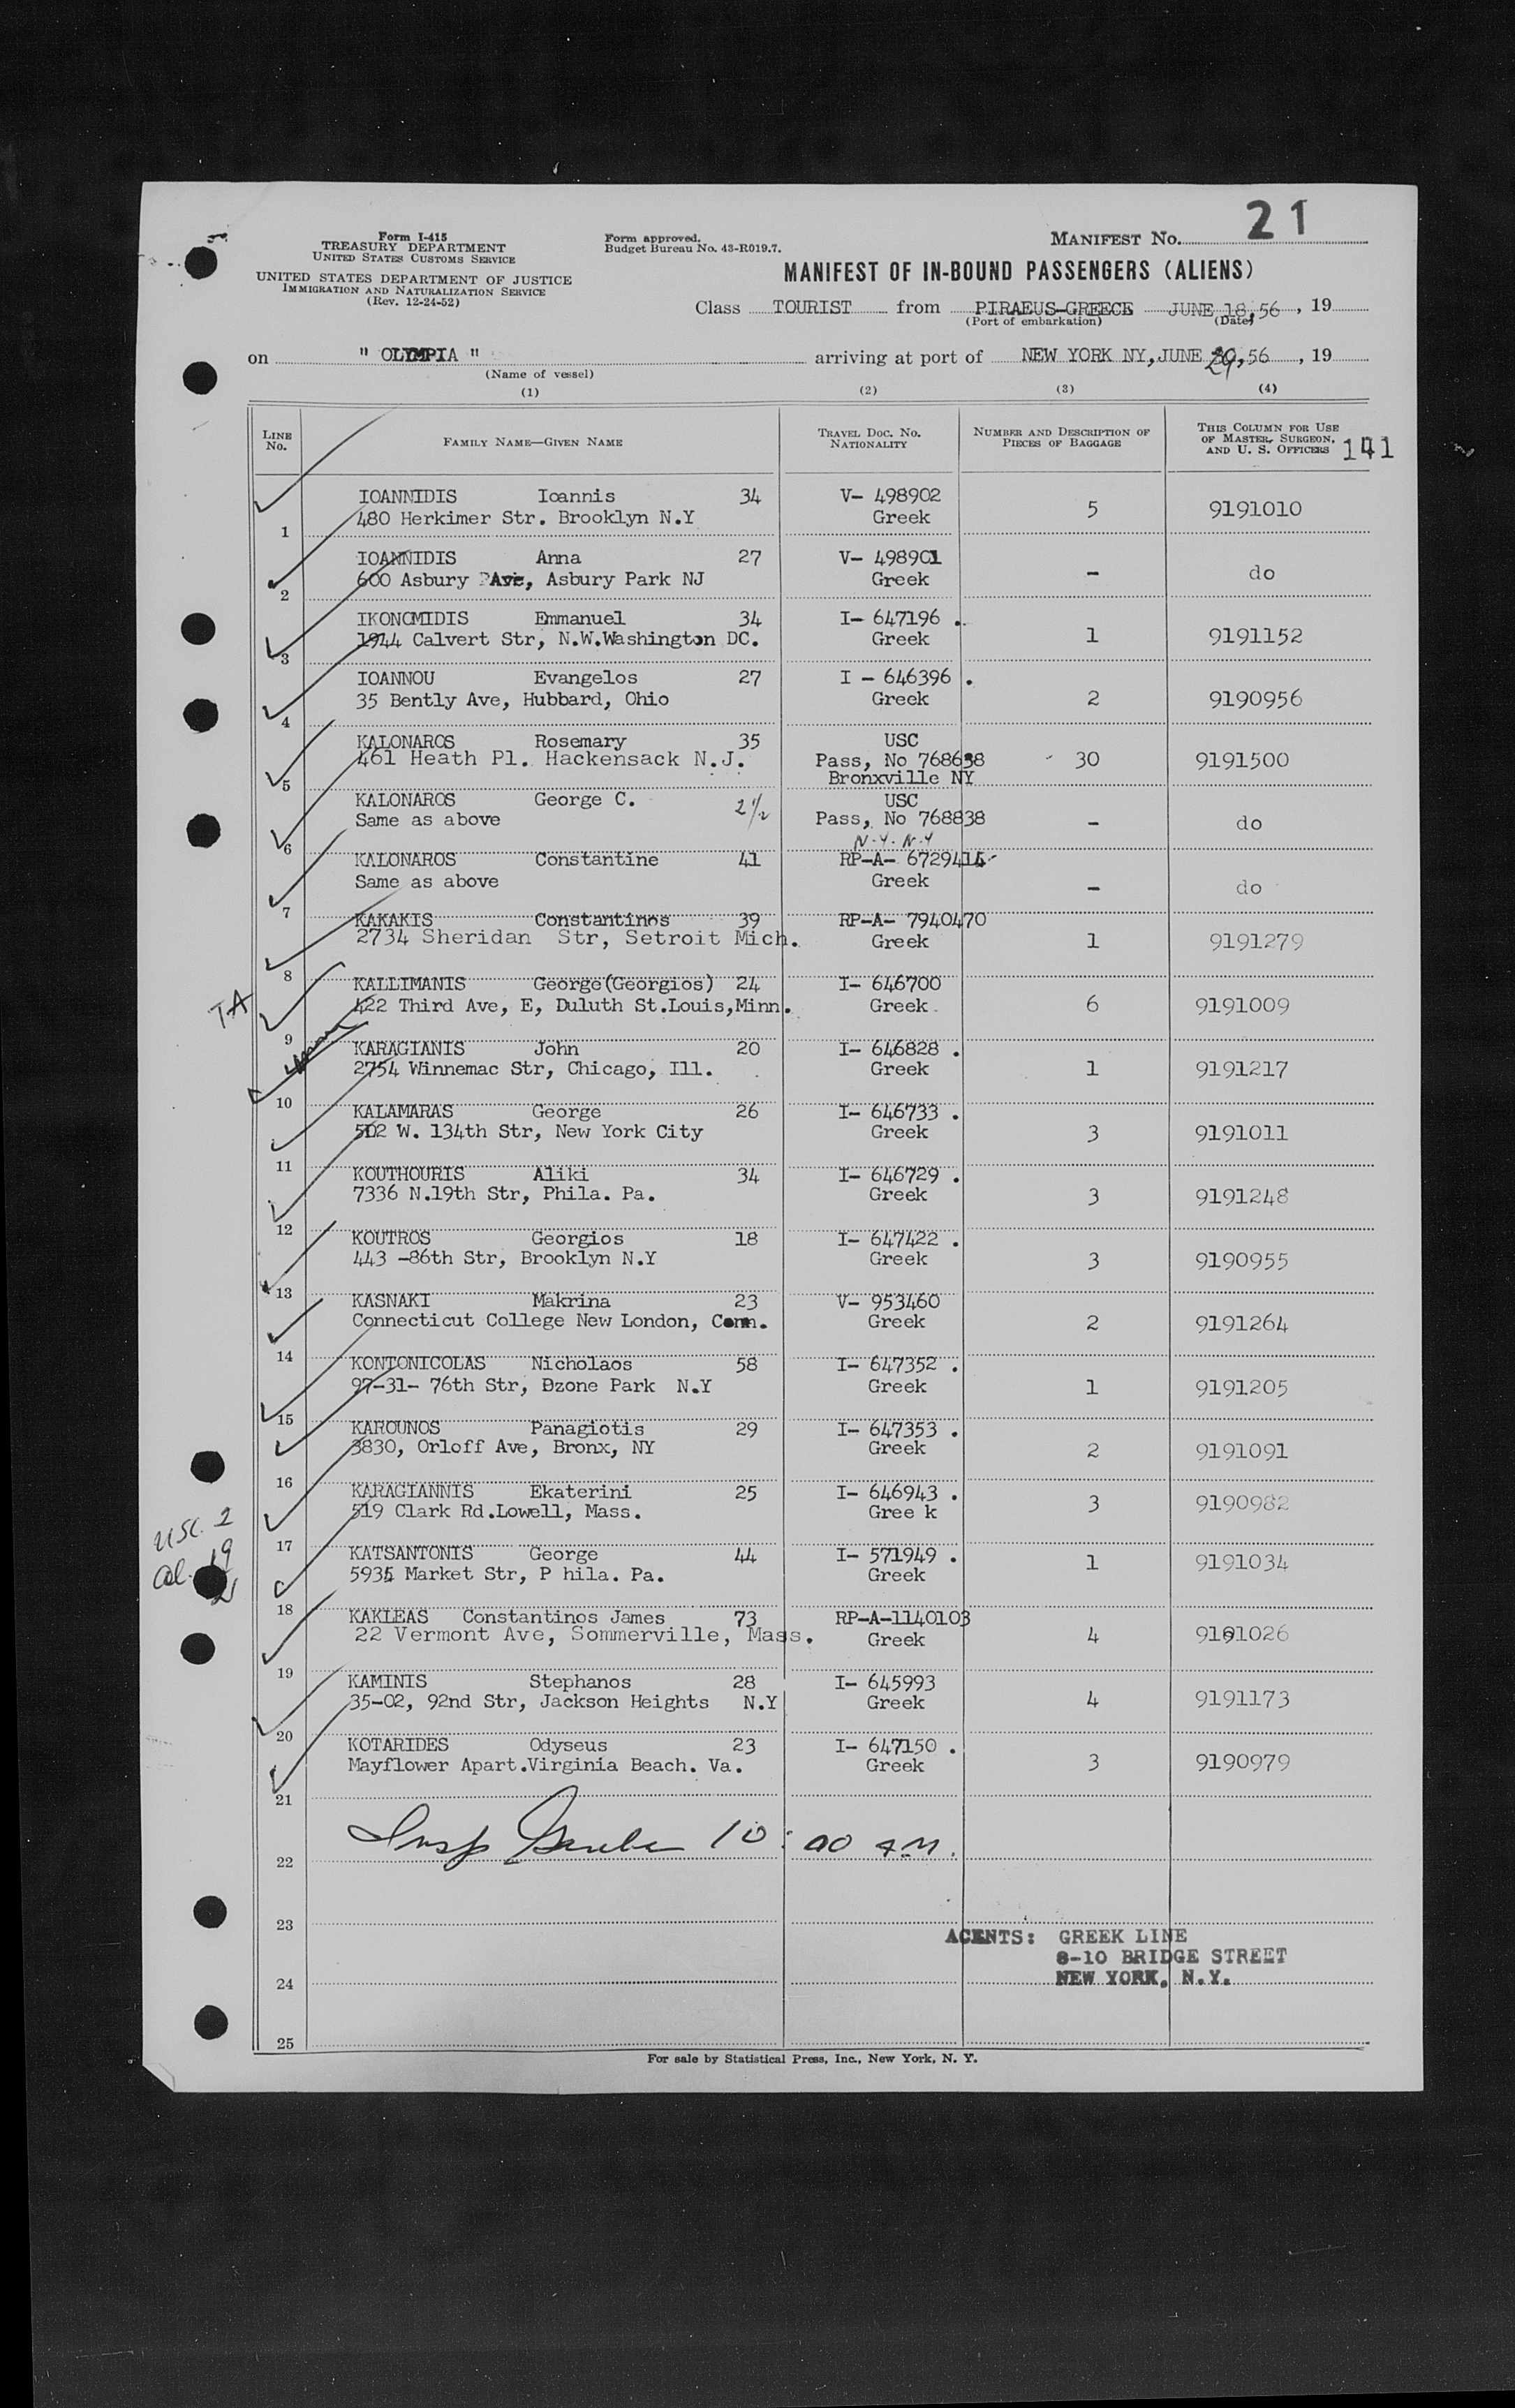 21
Form I-415
TREASURY DEPARTMENT
UNITED STATES CUSTOMS SERVICE
UNITED STATES DEPARTMENT OF JUSTICE
IMMIGRATION AND NATURALIZATION SERVICE
(Rev. 12-24-52)
Form approved.
Budget Bureau No. 43-R019.7.
MANIFEST NO.
MANIFEST OF IN-BOUND PASSENGERS (ALIENS)
Class TOURIST from PIRAEUS-GREECE JUNE 18,56, 19
(Port of embarkation) (Date)
on " OLYMPIA " arriving at port of NEW YORK NY, JUNE 29,56, 19
(Name of vessel)
(1) (2) (3) (4)
LINE No. FAMILY NAME—GIVEN NAME TRAVEL DOC. NO. NATIONALITY NUMBER AND DESCRIPTION OF PIECES OF BAGGAGE THIS COLUMN FOR USE OF MASTER, SURGEON, AND U. S. OFFICERS 141
IOANNIDIS Ioannis 34 V- 498902
1 480 Herkimer Str. Brooklyn N.Y Greek 5 9191010
IOANNIDIS Anna 27 V- 498901
2 600 Asbury Ave, Asbury Park NJ Greek - do
IKONOMIDIS Emmanuel 34 I- 647196 .
3 1944 Calvert Str, N.W.Washington DC. Greek 1 9191152
IOANNOU Evangelos 27 I - 646396 .
4 35 Bently Ave, Hubbard, Ohio Greek 2 9190956
KALONAROS Rosemary 35 USC
5 461 Heath Pl. Hackensack N.J. Pass, No 768638 30 9191500
Bronxville NY
KALONAROS George C. 2 1/2 USC
6 Same as above Pass, No 768838 - do
N.Y.N.Y
KALONAROS Constantine 41 RP-A- 6729414
7 Same as above Greek - do
KAKAKIS Constantinos 39 RP-A- 7940470
8 2734 Sheridan Str, Setroit Mich. Greek 1 9191279
TA
KALLIMANIS George(Georgios) 24 I- 646700
9 422 Third Ave, E, Duluth St.Louis,Minn. Greek 6 9191009
KARAGIANIS John 20 I- 646828 .
10 2754 Winnemac Str, Chicago, Ill. Greek 1 9191217
KALAMARAS George 26 I- 646733 .
11 502 W. 134th Str, New York City Greek 3 9191011
KOUTHOURIS Aliki 34 I- 646729 .
12 7336 N.19th Str, Phila. Pa. Greek 3 9191248
KOUTROS Georgios 18 I- 647422 .
13 443 -86th Str, Brooklyn N.Y Greek 3 9190955
KASNAKI Makrina 23 V- 953460
14 Connecticut College New London, Conn. Greek 2 9191264
KONTONICOLAS Nicholaos 58 I- 647352 .
15 97-31- 76th Str, Dzone Park N.Y Greek 1 9191205
KAROUNOS Panagiotis 29 I- 647353 .
16 3830, Orloff Ave, Bronx, NY Greek 2 9191091
KARAGIANNIS Ekaterini 25 I- 646943 .
17 519 Clark Rd.Lowell, Mass. Gree k 3 9190982
USC. 2
al. 19
KATSANTONIS George 44 I- 571949 .
18 5935 Market Str, P hila. Pa. Greek 1 9191034
KAKLEAS Constantinos James 73 RP-A-1140103
19 22 Vermont Ave, Sommerville, Mass. Greek 4 9191026
KAMINIS Stephanos 28 I- 645993
20 35-02, 92nd Str, Jackson Heights N.Y Greek 4 9191173
KOTARIDES Odyseus 23 I- 647150 .
21 Mayflower Apart.Virginia Beach. Va. Greek 3 9190979
22 Insp 10:00 AM.
23
AGENTS: GREEK LINE
8-10 BRIDGE STREET
24 NEW YORK, N.Y.
25
For sale by Statistical Press, Inc., New York, N. Y.